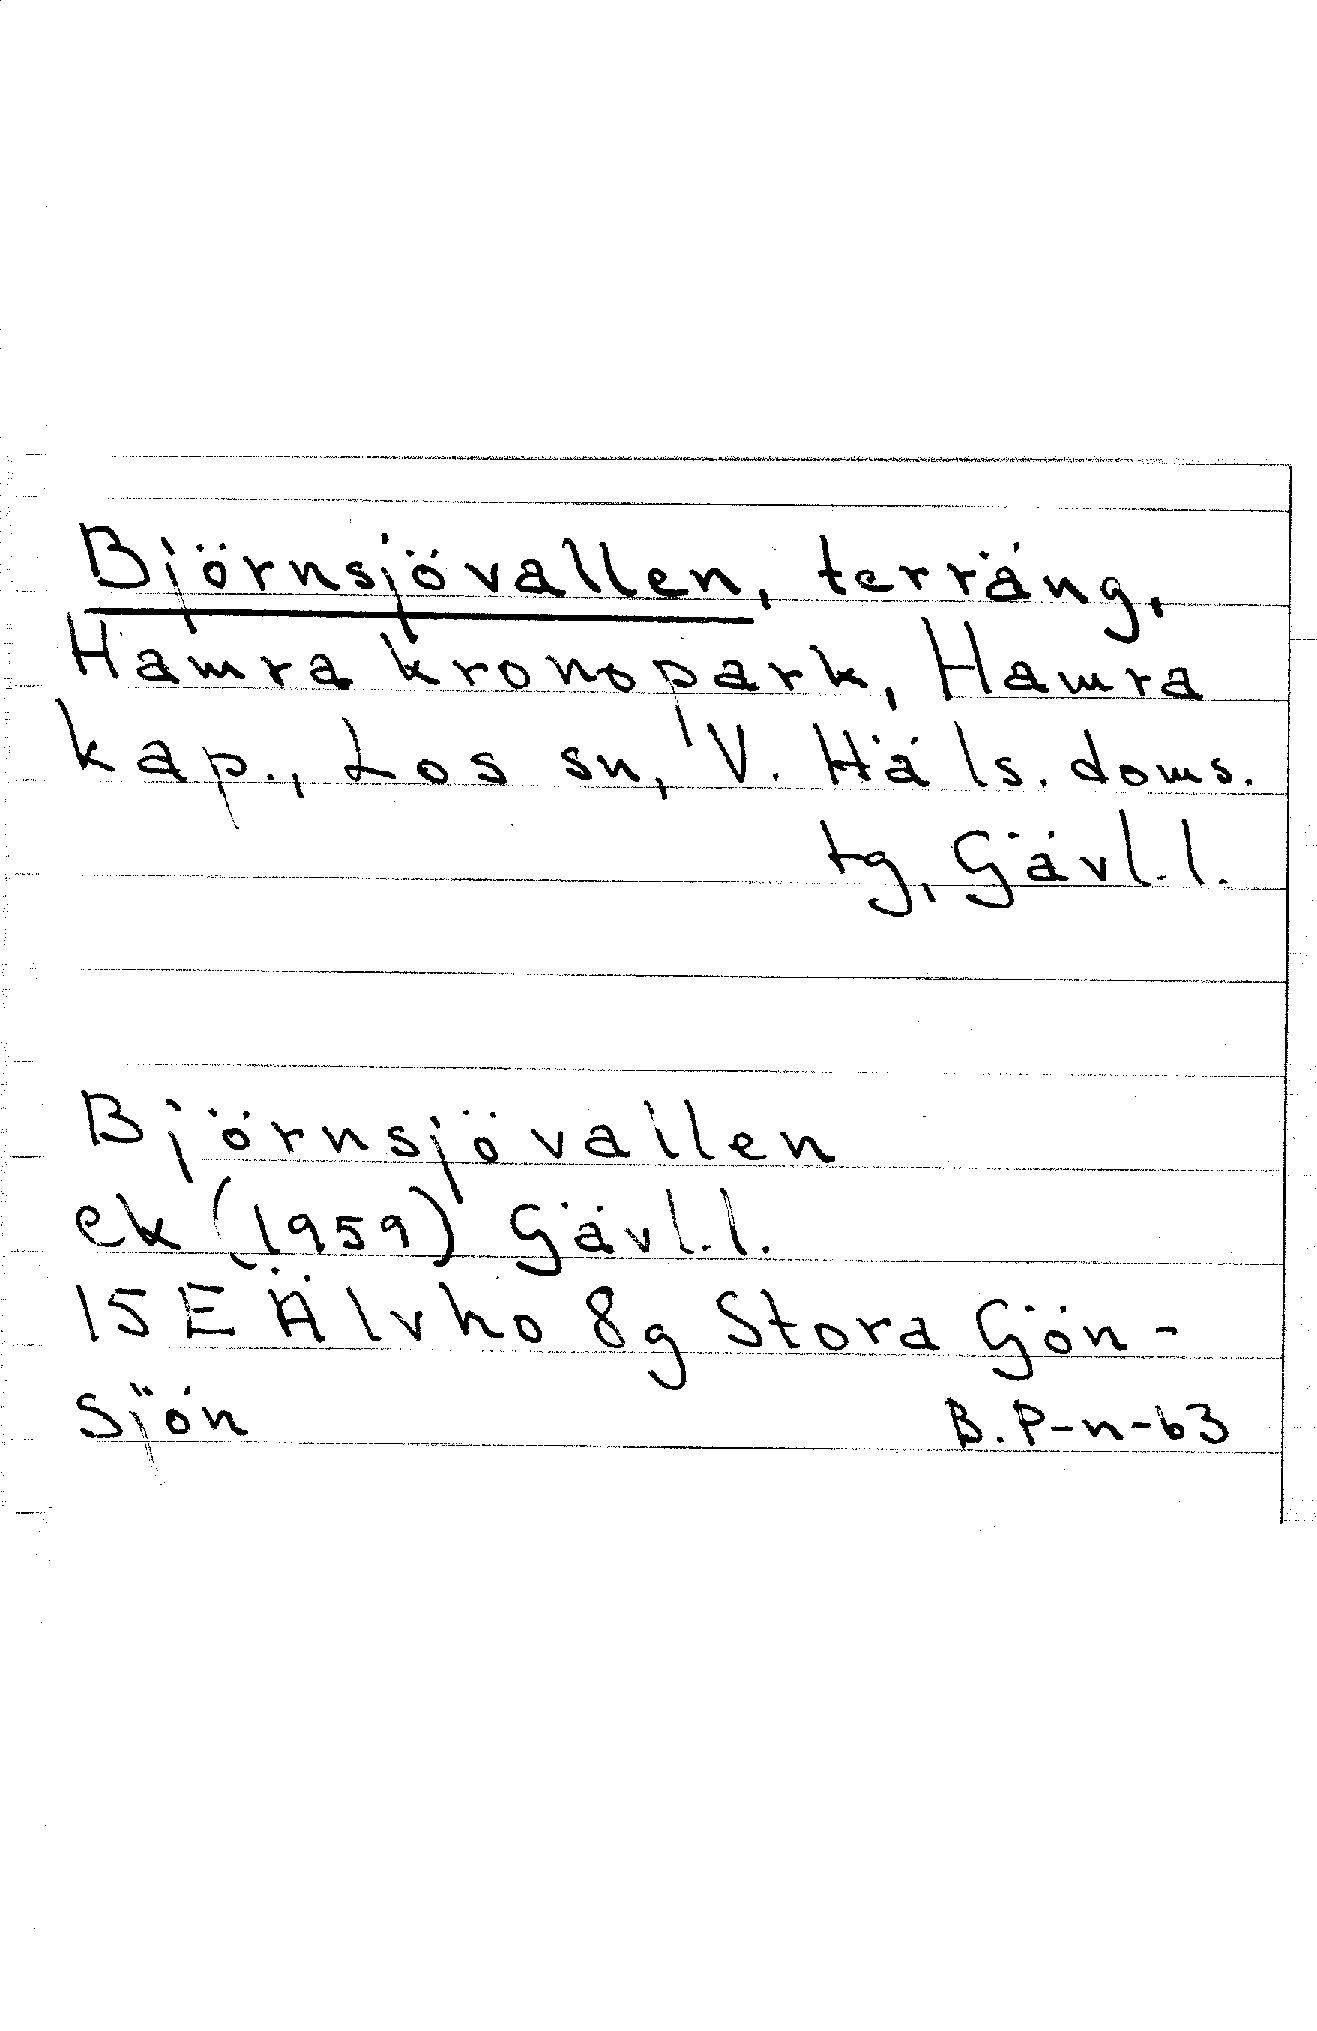 Björnsjövallen, terräng,
Hamra kronopark, Hamra
kap., Los sn, V. Häls. doms.
tg, Gävl. l.
Björnsjövallen
ek (1959) Gävl. l.
15E Älvho 8g Stora Gön-
sjön B.P-n-63